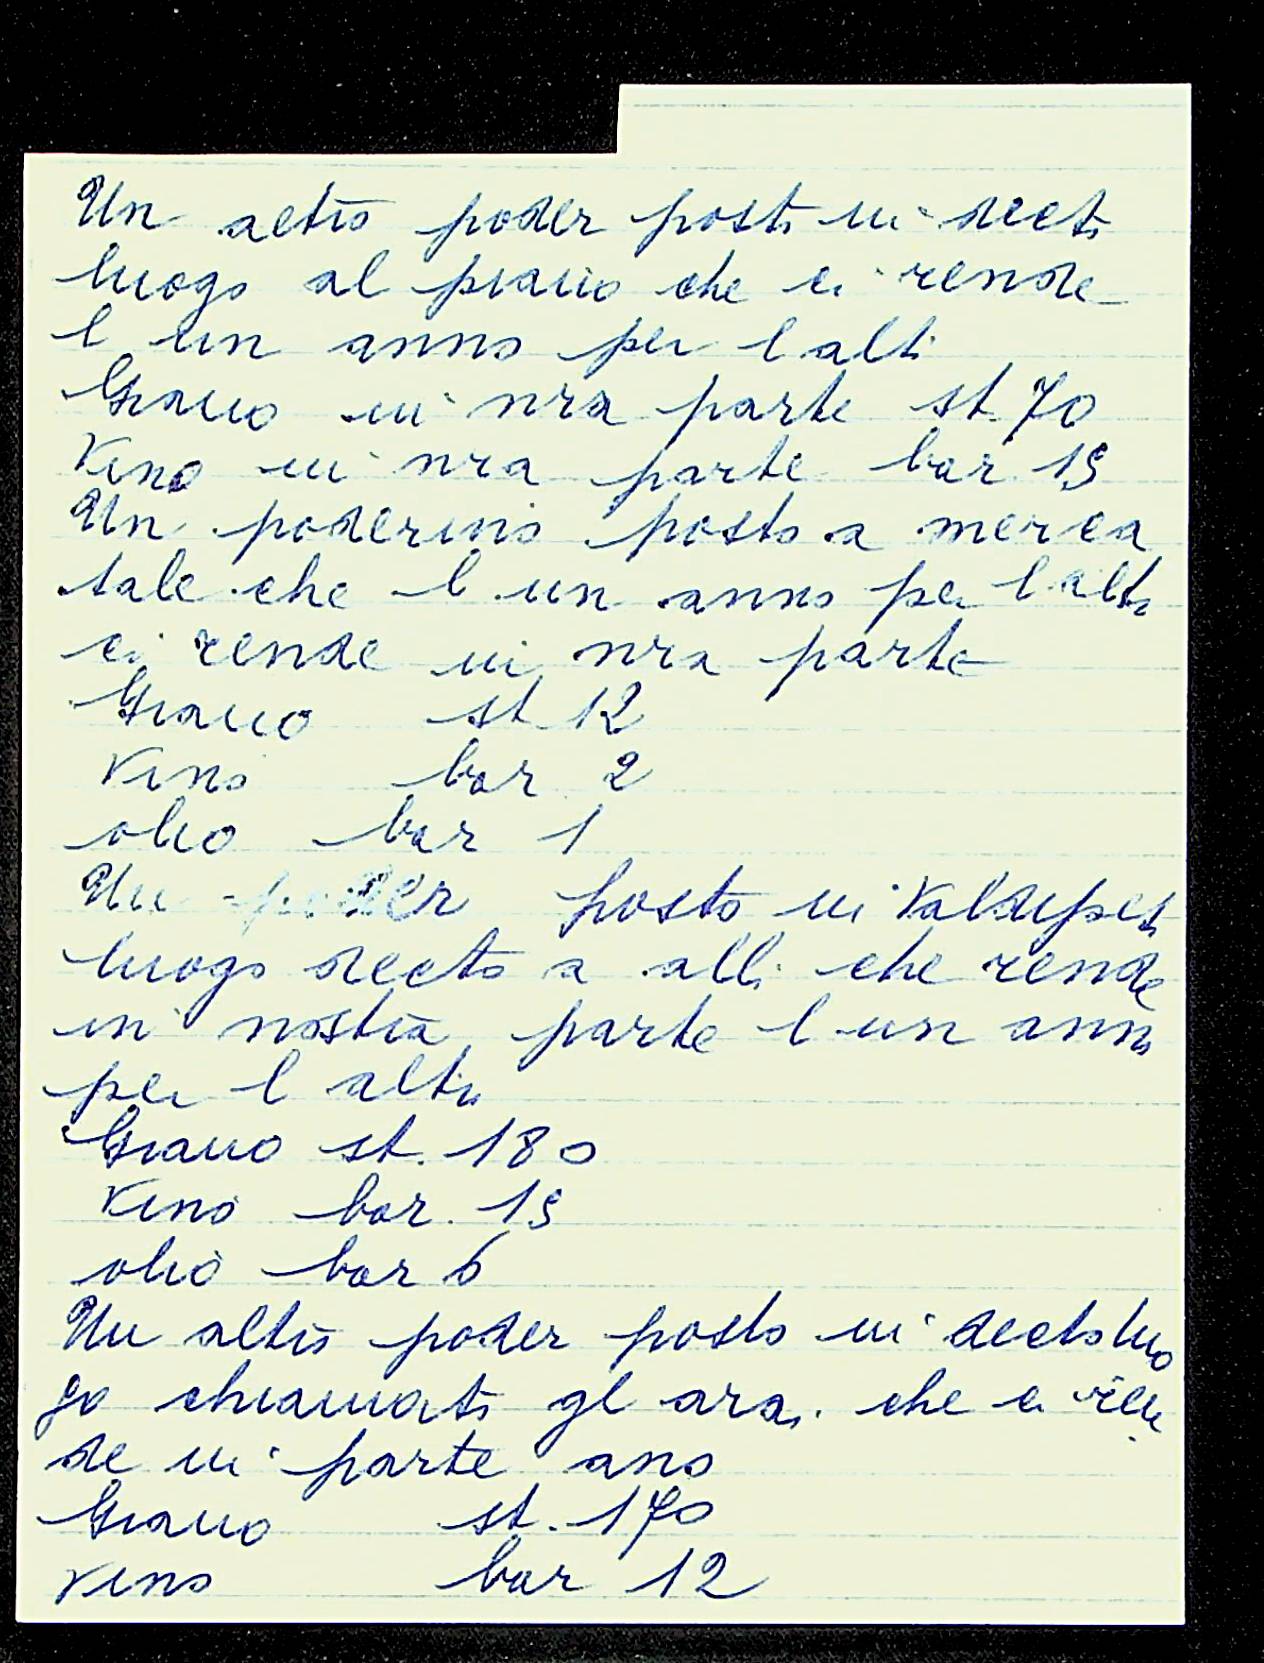 Un altro poder posto in decto
luogo al piano che ci rende
l un anno per l altro
Grano in nra parte st. 70
Vino in nra parte bar 15
Un poderino posto a merca
tale che l un anno per l altro
ci rende in nra parte
Grano st 12
Vino bar 2
olio bar 1
Un poder posto in Valdipesa
luogo decto a alli che rende
in nostra parte l un anno
per l altro
Grano st. 180
Vino bar. 15
olio bar 6
Un altro poder posto in decto luo
go chiamato gl ara. che ci ren
de in parte ano
Grano st. 170
Vino bar 12